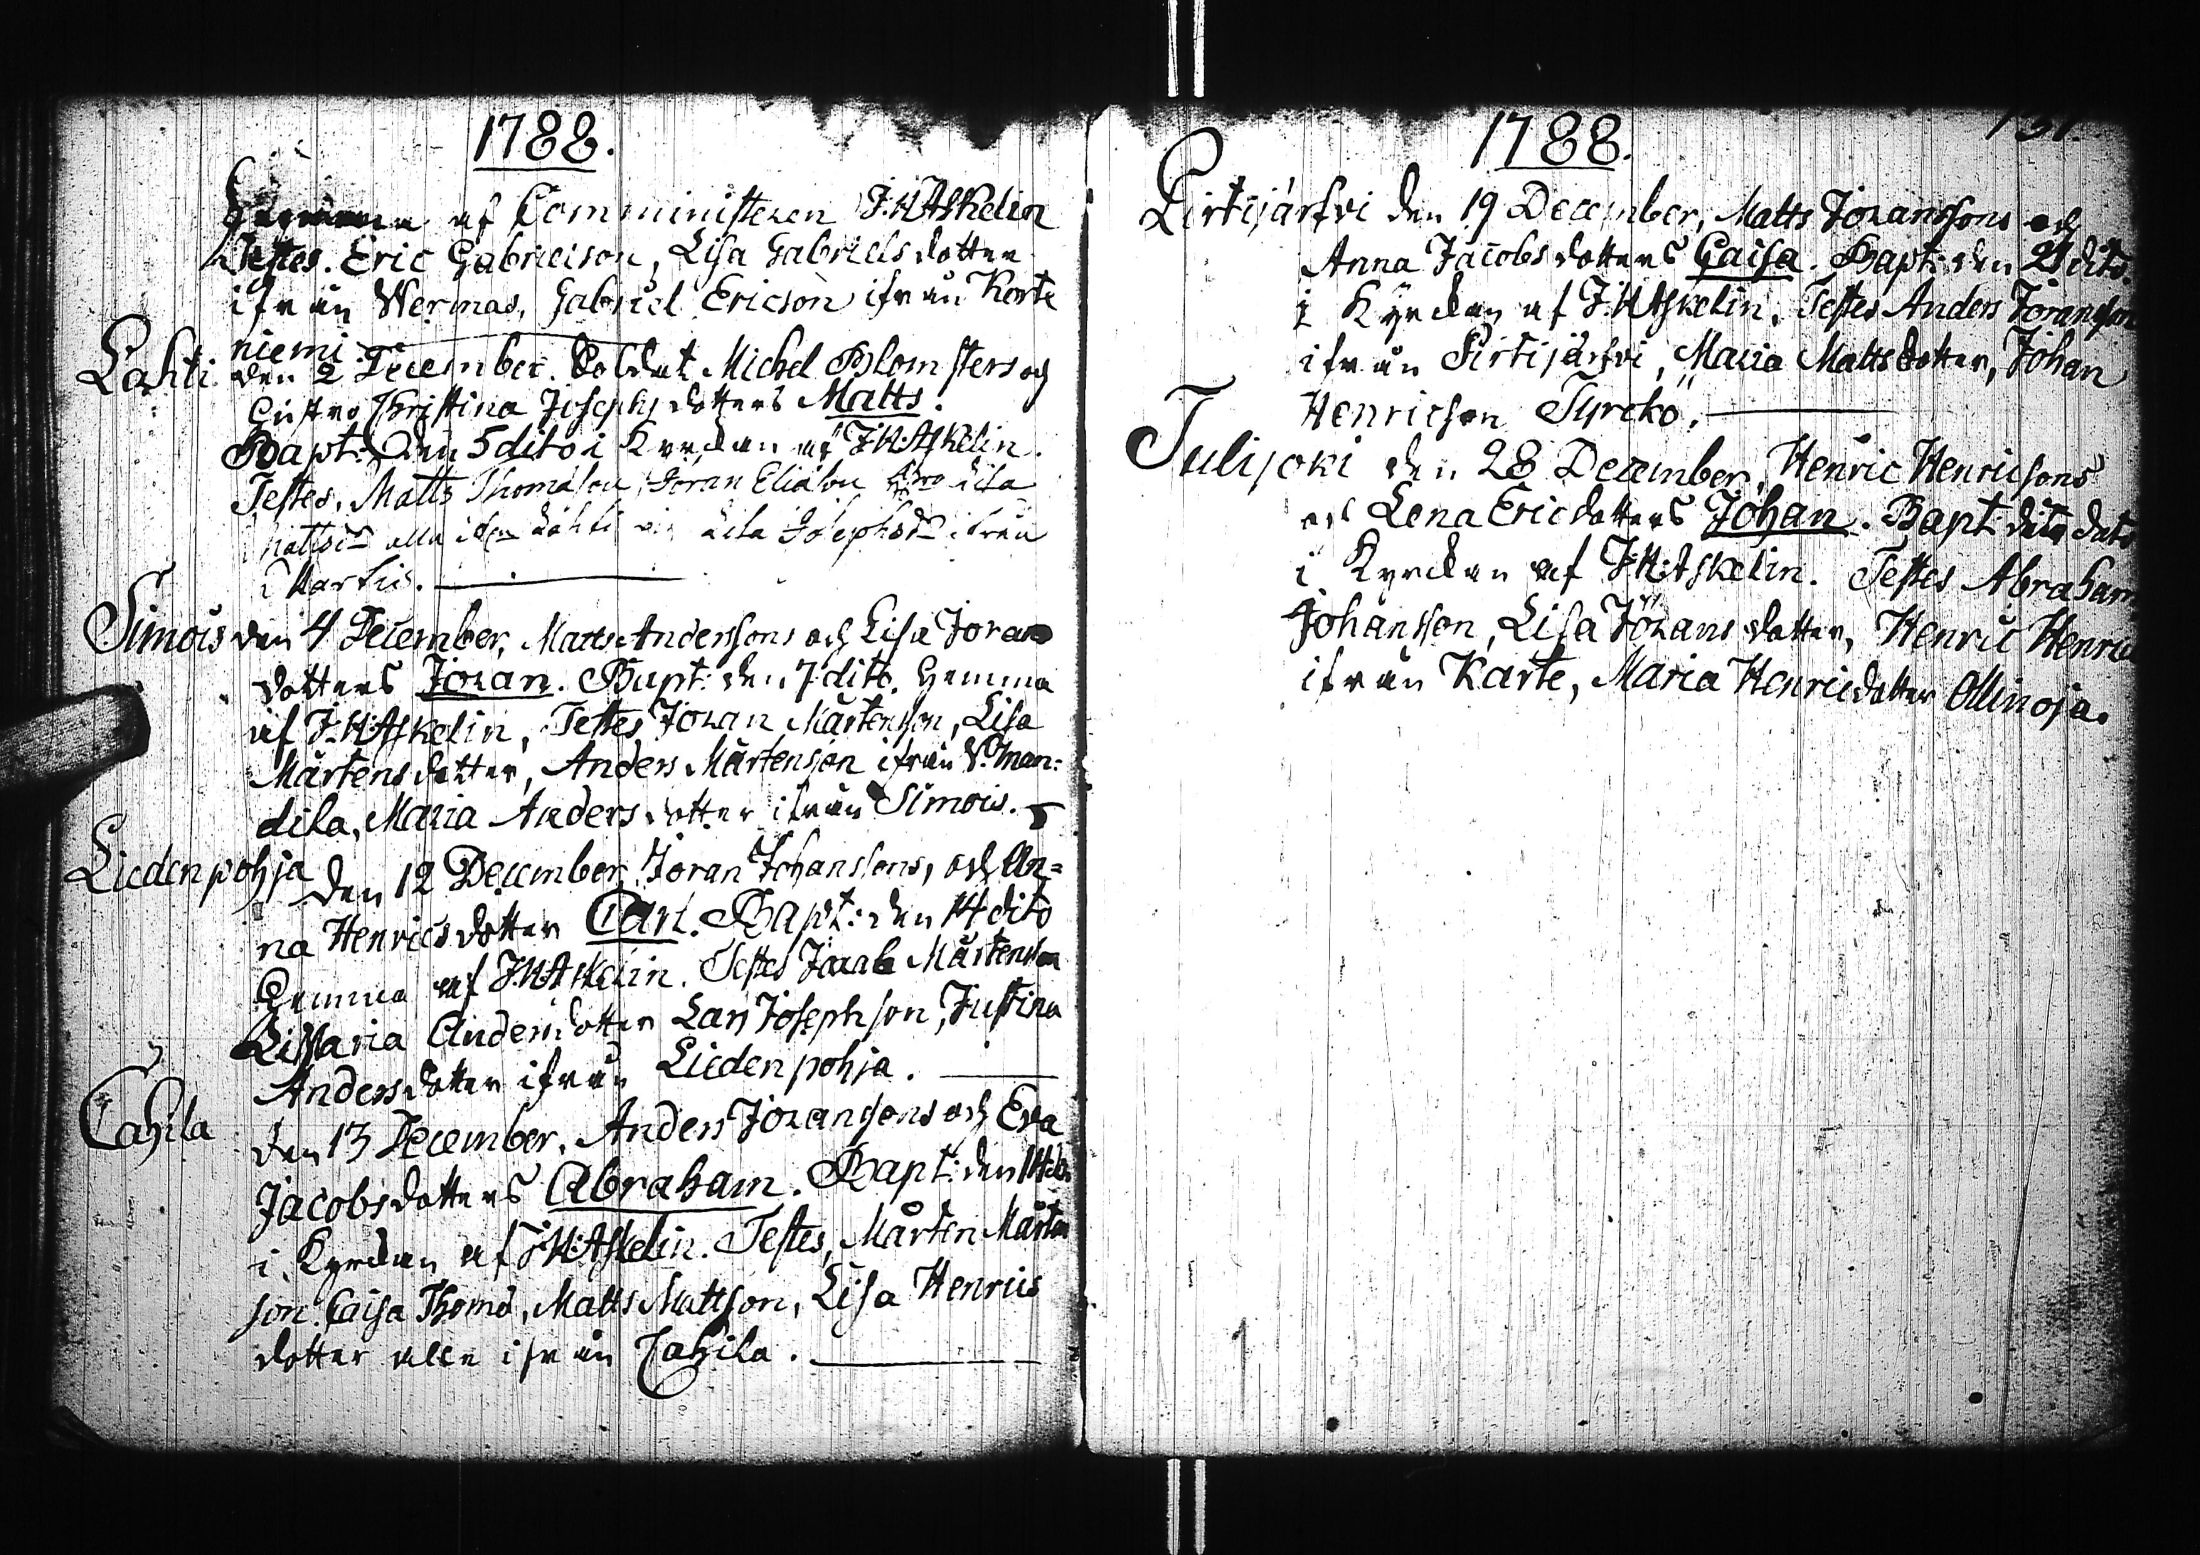 1788.
Hemma af Comministeren J:H:Askelin
Testes. Eric Gabrielson, Lisa Gabrielsdotter
ifrån Wermas, Gabriel Ericson ifrån Korte
niemi.
Lahti den 2 December. Soldat Michel Blomsters och
hustro Christina Josephsdotters Matts.
Bapt: den 5 dito i Kyrckan af J:H:Askelin.
Testes, Matts Thomason, Jöran Eliason Lisa
Mattsdr alla ifrån Lahti Lisa Josephsdr ifrån
Martis.
Simois den 4 December, Matts Anderssons och Lisa Jöran
dotters Jöran. Bapt: den 7 dito. Hemma
af J:H:Askelin, Testes Jöran Mårtensson, Lisa
Mårtensdotter, Anders Mårtenson ifrån V. Man:
dila, Maria Andersdotter ifrån Simois.
Liedenpohja den 12 December Jöran Johanssons, och An=
na Henricsdotter Carl. Bapt: den 14 dito
Hemma af J:H:Askelin. Testes Mårtenson
Maria Andersdotter Lars Josephson, Justina
Andersdotter ifrån Liedenpohja.
Cahila
den 13 December. Anders Jöransons och Eva
Jacobsdotters Abraham. Bapt: den 14 do
i Kyrckan af J:H:Askelin. Testes, Mårten Mårten
son. Caisa Thomd, Matts Mattson, Lisa Henrics
dotter alle ifrån Cahila.
1788. 131.
Pirtijärfvi den 19 December, Matts Jöranssons och
Anna Jacobsdotters Caisa. Bapt: den 21 dito.
i Kyrckan af J:H:Askelin. Testes Anders Jöransson
ifrån Pirtijärfvi, Maria Mattsdotter, Johan
Henricson Tyrckö.
Julijoki den 28 December, Henric Henricsons
och Lena Ericdotters Johan. Bapt: dito dato
i Kyrckan af J:H:Askelin. Testes Abraham
Johansson, Lisa Jöransdotter, Henric Henrics
ifrån Karte, Maria Henricdotter Ollinoja.